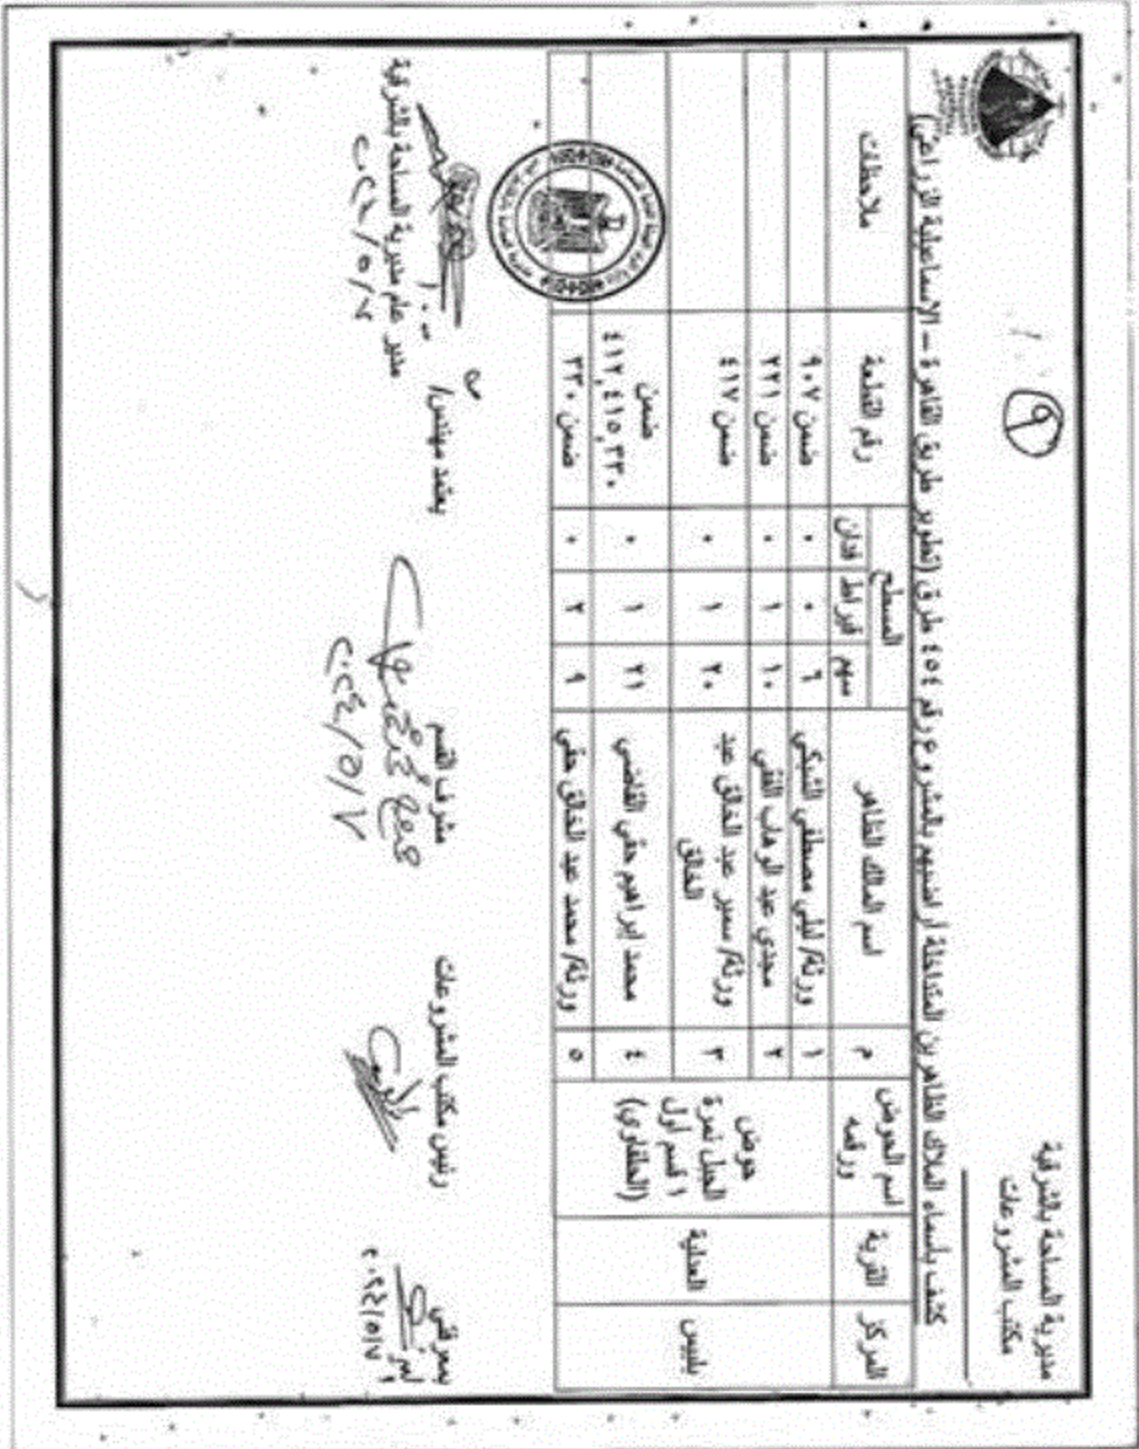 مديرية المساحة بالشرقية
مكتب المشروعات
٩
كشف بأسماء الملاك الظاهرين المتداخلة أراضيهم بالمشروع رقم ٤٥٤ طرق (تطوير طريق القاهرة – الإسماعيلية الزراعى)
المركز القرية اسم الحوض ورقمه م اسم المالك الظاهر المسطح رقم القطعة ملاحظات
سهم قيراط فدان
بلبيس العدلية حوض الجبل نمرة ١ قسم أول (الحلفاوي)
١ ورثة/ ليلي مصطفي الشبكي ٦ ٠ ٠ ضمن ٩٠٧
٢ مجدي عبد الوهاب الفقي ١٠ ١ ٠ ضمن ٢٢١
٣ ورثة/ سمير عبد الخالق عبد الخالق ٢٠ ١ ٠ ضمن ٤١٧
٤ محمد ابراهيم حقي القاضي ٢١ ١ ٠ ضمن ٤١٢,٤١٥,٣٣٠
٥ ورثة/ محمد عبد الخالق حقي ٩ ٢ ٠ ضمن ٣٣٠
بمعرفتي رئيس مكتب المشروعات مشرف القسم يعتمد مهندس/
مدير عام مديرية المساحة بالشرقية
٢٠٢٤/٥/٧ ٢٠٢٤/٥/٧ ٢٠٢٤/٥/٧